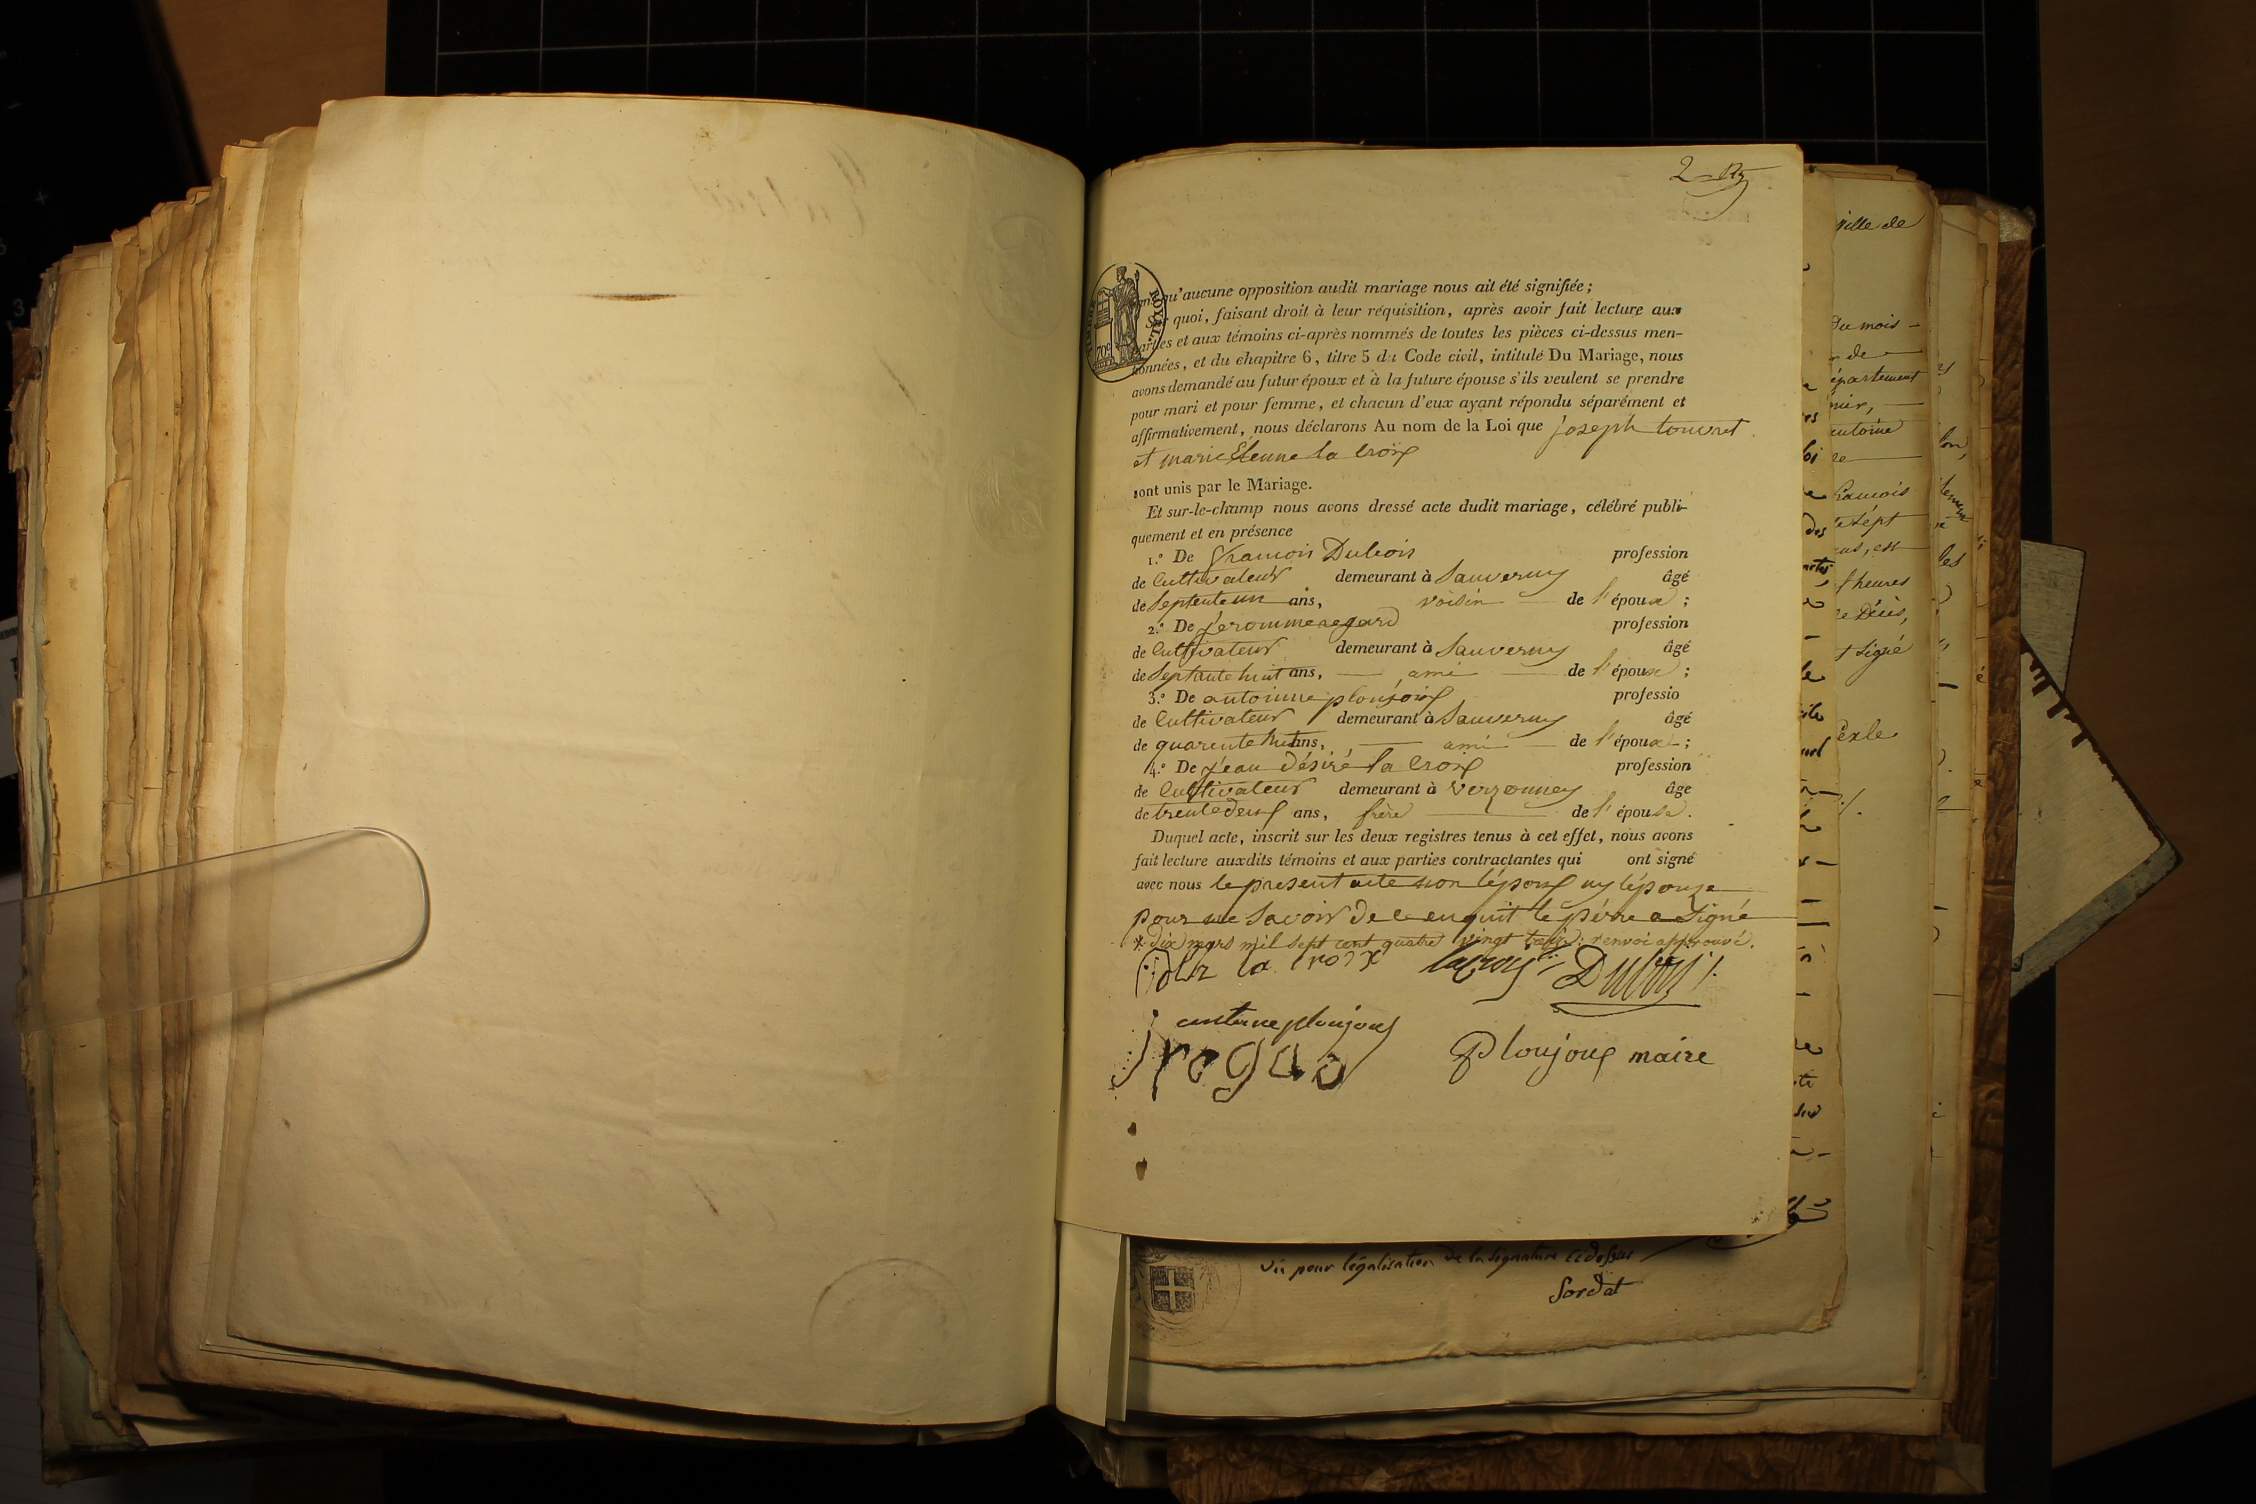 2
TIMBRE ROYAL
70c
qu'aucune opposition audit mariage nous ait été signifiée ;
Sur quoi, faisant droit à leur réquisition, après avoir fait lecture aux
parties et aux témoins ci-après nommés de toutes les pièces ci-dessus men-
tionnées, et du chapitre 6, titre 5 du Code civil, intitulé Du Mariage, nous
avons demandé au futur époux et à la future épouse s'ils veulent se prendre
pour mari et pour femme, et chacun d'eux ayant répondu séparément et
affirmativement, nous déclarons Au nom de la Loi que joseph touvret
et marie la croix
sont unis par le Mariage.
Et sur-le-champ nous avons dressé acte dudit mariage, célébré publi-
quement et en présence
1.° De françois Dubois profession
de Cultivateur demeurant à Sauverny âgé
de Septente un ans, voisin de l'épouse ;
2.° De jéromme regard profession
de Cultivateur demeurant à Sauverny âgé
de Septante huit ans, ami de l'épouse ;
3.° De antoinne ploujoux professio
de Cultivateur demeurant à Sauverny âgé
de quarente huit ans, ami de l'époux ;
4.° De jean désiré la Croix profession
de Cultivateur demeurant à Verzonnex âge
de trente deux ans, frère de l'épouse.
Duquel acte, inscrit sur les deux registres tenus à cet effet, nous avons
fait lecture auxdits témoins et aux parties contractantes qui ont signé
avec nous le present acte non l'époux ny l'épouze
pour ne Savoir de ce enquit le père a Signé
* dix mars mil sept cent quatre vingt treize : renvoi approuvé.
la croix lacroix Dubois
antoine ploujoux
j regad Ploujoux maire
Vu pour légalisation de la signature cidessus
Sordat
ville de
Du mois
de
département
antoine
françois
sept
heures
le Décès,
signé